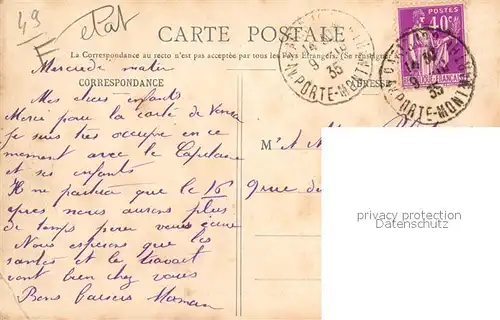 49
E
etat
CARTE POSTALE
La Correspondance au recto n'est pas acceptée par tous les Pays Étrangers. (Se renseigner
CORRESPONDANCE
ADRESSE
POSTES
40c
PORTE-MONT
35
PORTE-MONT
35
Mercredi matin
Mes chers enfants
Merci pour la carte de
je suis tres occupée en ce
moment avec le
et ses enfants
Il ne partira que le 16
apres nous aurons plus
de temps pour vous écrire
Nous esperons que les
santes et le travail
vont bien chez vous
Bons baisers Maman
M
9 rue
privacy protection
Datenschutz